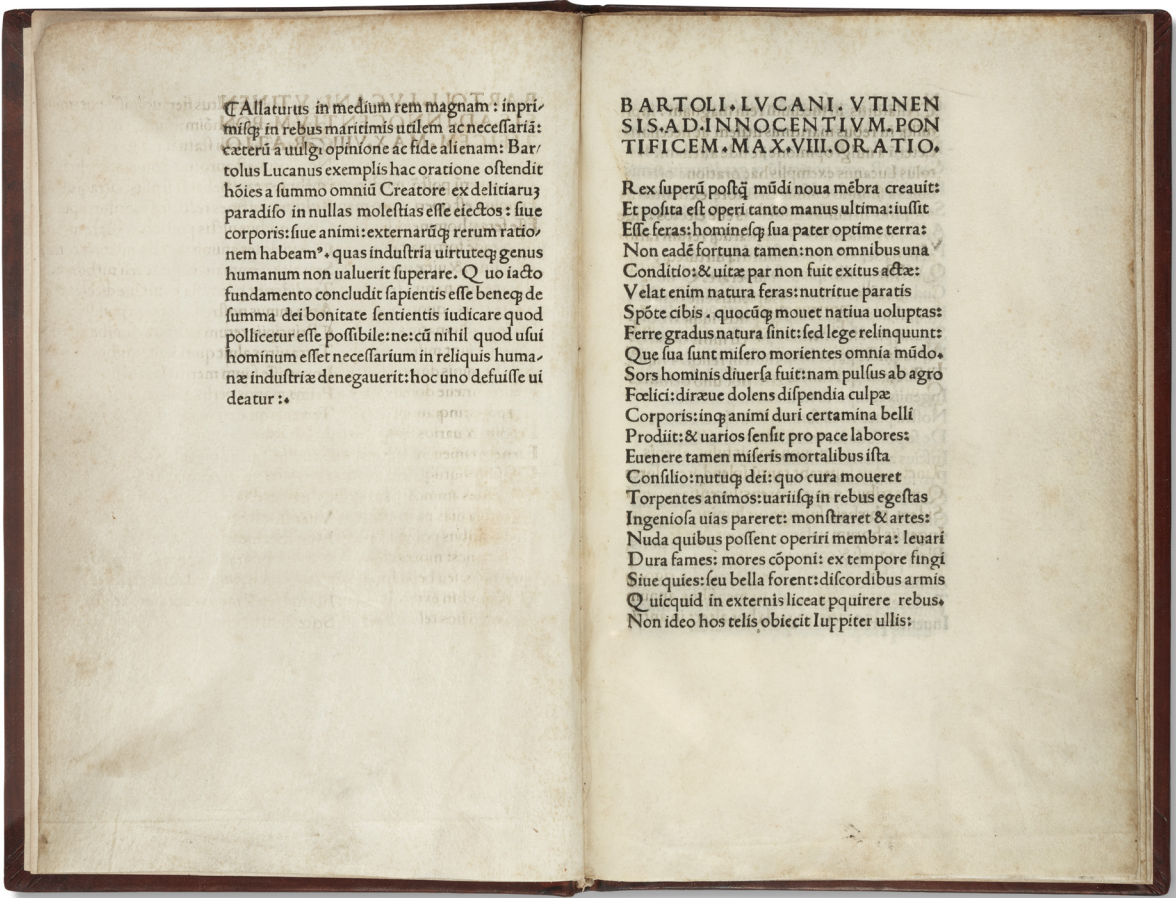 ¶Allaturus in medium rem magnam : inpri-
miſqꝫ in rebus maritimis utilem ac neceſſariā:
cæterū a uulgi opinione ac fide alienam: Bar-
tolus Lucanus exemplis hac oratione oſtendit
hōies a ſummo omniū Creatore ex delitiaruꝫ
paradiſo in nullas moleſtias eſſe eiectos : ſiue
corporis: ſiue animi: externarūqꝫ rerum ratio-
nem habeamꝰ. quas induſtria uirtuteqꝫ genus
humanum non ualuerit ſuperare. Quo iacto
fundamento concludit ſapientis eſſe beneqꝫ de
ſumma dei bonitate ſentientis iudicare quod
pollicetur eſſe poſſibile: ne: cū nihil quod uſui
hominum eſſet neceſſarium in reliquis huma-
næ induſtriæ denegauerit: hoc uno defuiſſe ui
deatur :.
BARTOLI. LVCANI. VTINEN
SIS. AD. INNOCENTIVM. PON
TIFICEM. MAX. VIII. ORATIO.
Rex ſuperū poſtq̄ mūdi noua mēbra creauit:
Et poſita eſt operi tanto manus ultima: iuſſit
Eſſe feras: hominesqꝫ ſua pater optime terra:
Non eadē fortuna tamen: non omnibus una
Conditio: & uitæ par non fuit exitus actæ:
Velat enim natura feras: nutritue paratis
Spōte cibis . quocūqꝫ mouet natiua uoluptas:
Ferre gradus natura ſinit: ſed lege relinquunt:
Que ſua ſunt miſero morientes omnia mūdo.
Sors hominis diuerſa fuit: nam pulſus ab agro
Fœlici: diræue dolens diſpendia culpæ
Corporis: inqꝫ animi duri certamina belli
Prodiit: & uarios ſenſit pro pace labores:
Euenere tamen miſeris mortalibus iſta
Conſilio: nutuqꝫ dei: quo cura moueret
Torpentes animos: uariiſqꝫ in rebus egeſtas
Ingenioſa uias pareret: monſtraret & artes:
Nuda quibus poſſent operiri membra: leuari
Dura fames: mores cōponi: ex tempore fingi
Siue quies: ſeu bella forent: diſcordibus armis
Quicquid in externis liceat ꝑquirere rebus.
Non ideo hos telis obiecit Iuppiter ullis: